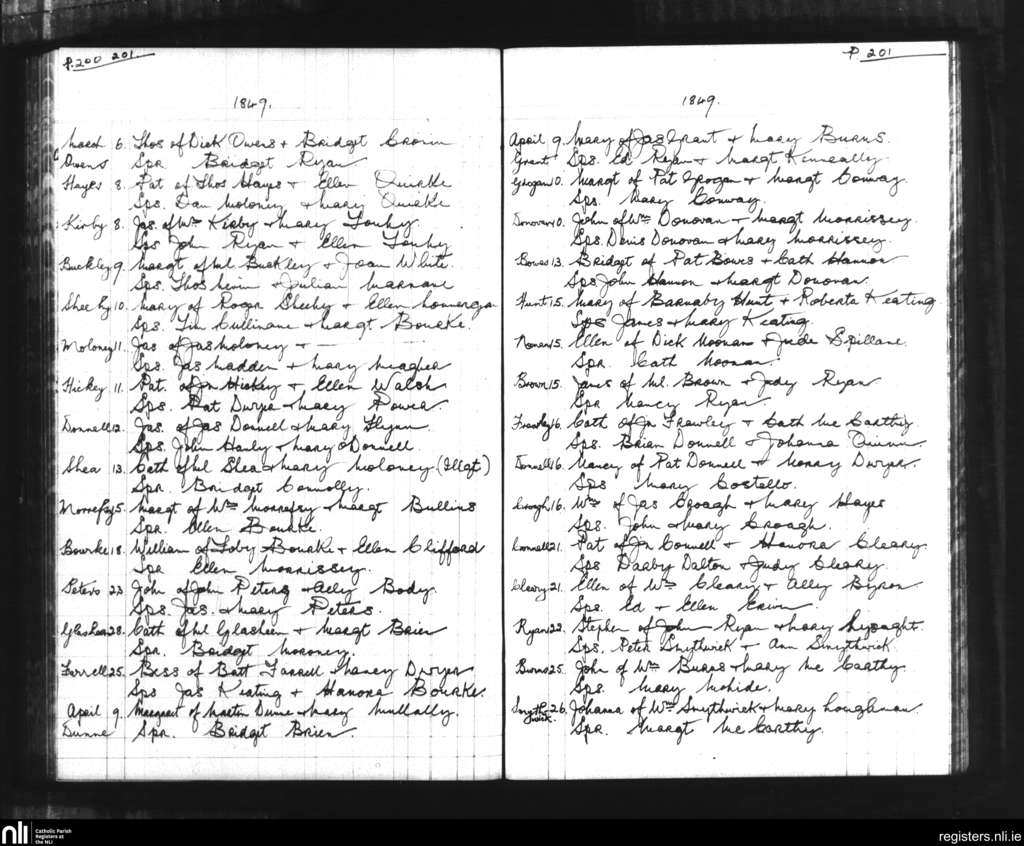 P.200 201.
1849.
March 6. Thos of Dick Owens + Bridget Cronin
Owens Spr. Bridget Ryan
Hayes 8. Pat of Thos Hayes + Ellen Quirke
Sps. Dan Moloney + Mary Quirke
Kirby 8. Jas of Wm Kirby + Mary
Sps John Ryan + Ellen
Buckley 9. Margt of Ml Buckley + Joan White.
Sps. Thos + Julian Marnane
Sheehy 10. Mary of Roger Sheehy + Ellen Lonnergan
Sps. Tim Cullinane + Margt Bourke.
Moloney 11. Jas of Jas Moloney + —
Sps. Jas Madden + Mary Meagher
Hickey 11. Pat. of Jn Hickey + Ellen Walsh
Sps. Pat Dwyer + Mary Power.
Donnell 12. Jas. of Jas Donnell + Mary
Sps. John Hanly + Mary O Donnell.
Shea 13. Cath of Ml Shea + Mary Moloney (Illgt)
Spr. Bridget Connolly.
15. Margt of Wm + Margt Bullins
Spr. Ellen Bourke.
Bourke 18. William of Toby Bourke + Ellen Clifford
Spr Ellen Morrissey.
Peters 23 John of John Peters + Ally Body.
Sps. Jas. + Mary Peters.
Glasheen 28. Cath of Ml Glasheen + Margt Brien
Spr. Bridget Moroney.
Farrell 25. Bess of Batt Farrell + Nancy Dwyer
Sps Jas Keating + Hanora Bourke.
April 9. Margaret of Martin Dunne + Mary Mullally.
Dunne Spr. Bridget Brien.
P 201
1849.
April 9. Mary of Jas Grant + Mary Burns.
Grant Sps. Ed Ryan + Margt Kenneally
Grogan 10. Margt of Pat Grogan + Margt Conway.
Sps. Mary Conway.
Donovan 10. John of Wm Donovan + Margt Morrissey.
Sps. Denis Donovan + Mary Morrissey.
Bowes 13. Bridget of Pat Bowes + Cath Hannon
Sps John Hannon + Margt Donovan.
Hunt 15. Mary of Barnaby Hunt + Roberta Keating.
Sps James + Mary Keating.
Noonan 15. Ellen of Dick Noonan + Jude Spillane
Spr. Cath Noonan.
Brown 15. James of Ml. Brown + Judy Ryan
Spr Nancy Ryan.
Frawley 16. Cath of Jn Frawley + Cath Mc Carthy.
Sps. Brian Donnell + Johanna Quinn
Donnell 16. Nancy of Pat Donnell + Dwyer.
Sps Mary Costello.
Croagh 16. Wm of Jas Croagh + Mary Hayes
Sps. John + Mary Croagh.
Connell 21. Pat of Jn Connell + Hanora Cleary.
Sps Darby Dalton + Judy Cleary.
Cleary 21. Ellen of Wm Cleary + Ally Byron
Sps. Ed + Ellen
Ryan 22. Stephen of John Ryan + Mary Lysaght.
Sps. Peter Smythwick + Ann Smythwick.
Burns 25. John of Wm Burns + Mary Mc Carthy.
Sps. Mary
Smythwick. 26. Johanna of Wm Smythwick + Mary Loughman
Spr. Margt Mc Carthy.
nli
Catholic Parish
Registers at
the NLI
registers.nli.ie